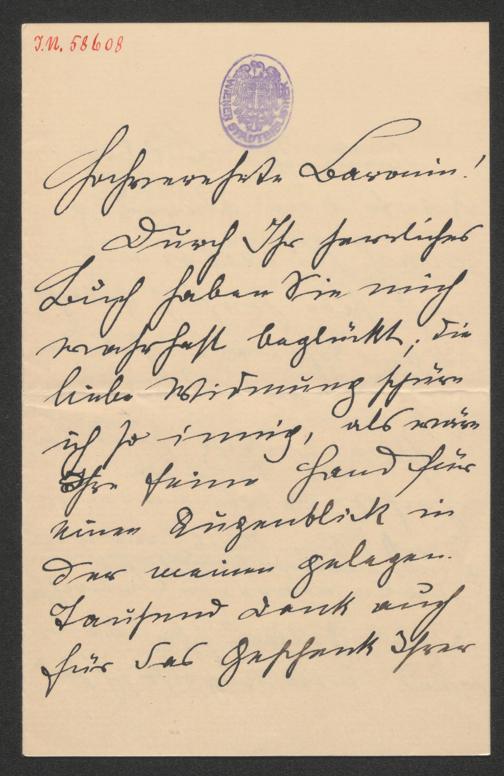 J.N. 58608
WIENER STADTBIBLIOTHEK
Hochverehrte Baronin!
Durch Ihr herrliches
Buch haben Sie mich
wahrhaft beglückt; die
liebe Widmung spüre
ich so innig, als wäre
Ihre feine Hand für
einen Augenblick in
der meinen gelegen.
Tausend Dank auch
für das Geschenk Ihrer